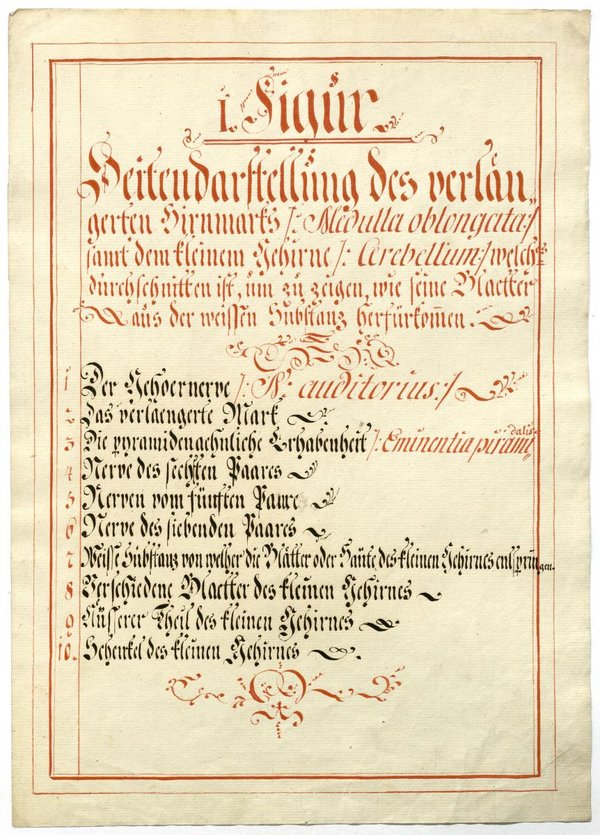 I. Figur.
Seitendarstellung des verlän„
gerten Hirnmarks /: Medulla oblongata:/
samt dem kleinem Gehirne /: Cerebellum:/ welches
durchschnitten ist, um zu zeigen, wie seine Blaetter
aus der weissen Substanz herfürkom̄en.
1 Der Gehoernerve /: N. auditorius:/
2 Das verlaengerte Mark
3 Die pyramidenaehnliche Erhabenheit /: Eminentia pirami„dalis
4 Nerve des sechsten Paares
5 Nerven vom fünften Paare
6 Nerve des siebenden Paares
7 Weisse Substanz von welher die Blätter oder Häute des kleinen Gehirnes entspringen.
8 Verschiedene Blaetter des kleinen Gehirnes
9 Äüsserer Theil des kleinen Gehirnes
10. Schenkel des kleinen Gehirnes